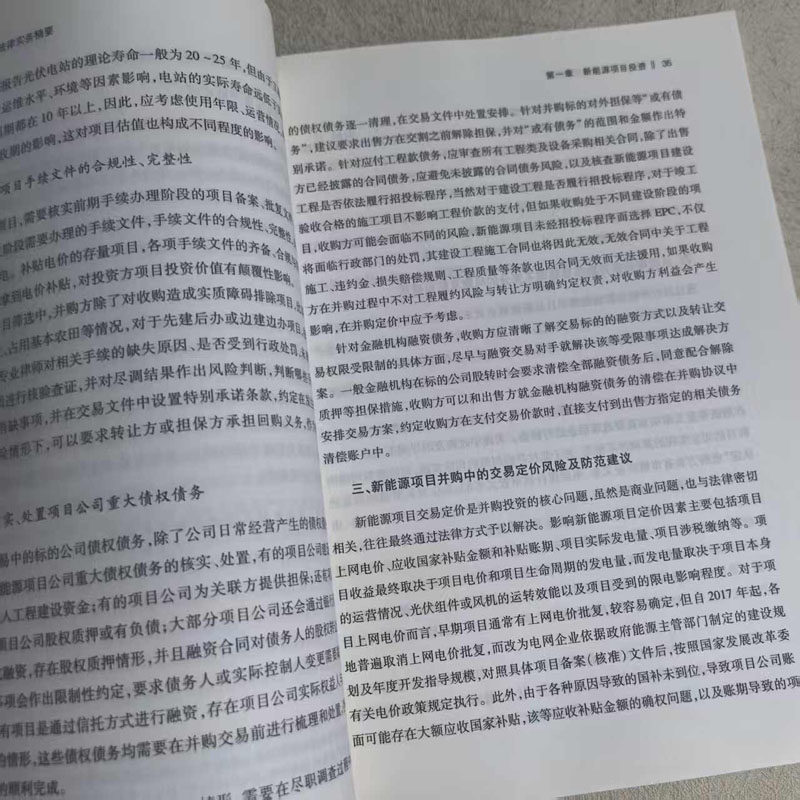 法律实务精要
报告光伏电站的理论寿命一般为20~25年,但由于
运维水平、环境等因素影响,电站的实际寿命远低于
期都在10年以上,因此,应考虑使用年限、运营情况、
收期的影响,这对项目估值也构成不同程度的影响。
项目手续文件的合规性、完整性
项目,需要核实前期手续办理阶段的项目备案、批复文
阶段需要办理的手续文件,手续文件的合规性、完整性
电。补贴电价的存量项目,各项手续文件的齐备、合规
拿到电价补贴,对投资方项目投资价值有颠覆性影响。
目筛选中,并购方除了对收购造成实质障碍排除项目,
占用基本农田等情况,对于先建后办或边建边办项目,
专业律师对相关手续的缺失原因、是否受到行政处罚、
进行核验查证,并对尽调结果作出风险判断,判断哪些
缺事项,并在交易文件中设置特别承诺条款,约定在
情形下,可以要求转让方或担保方承担回购义务,
实、处置项目公司重大债权债务
易中的标的公司债权债务,除了公司日常经营产生的债权
能源项目公司重大债权债务的核实、处置,有的项目公司
人工程建设资金;有的项目公司为关联方提供担保;还有
项目公司股权质押或有负债;大部分项目公司还会通过
融资,存在股权质押情形,并且融资合同对债务人的股权
事项会作出限制性约定,要求债务人或实际控制人变更需
有项目是通过信托方式进行融资,存在项目公司实际权益
的情形,这些债权债务均需要在并购交易前进行梳理和处置,
的顺利完成。
情形,需要在尽职调查过程
第一章 新能源项目投资 35
的债权债务逐一清理,在交易文件中处置安排。针对并购标的对外担保等“或有债
务”,建议要求出售方在交割之前解除担保,并对“或有债务”的范围和金额作出特
别承诺。针对应付工程款债务,应审查所有工程类及设备采购相关合同,除了出售
方已经披露的合同债务,应避免未披露的合同债务风险,以及核查新能源项目建设
工程是否依法履行招投标程序,当然对于建设工程是否履行招投标程序,对于竣工
验收合格的施工项目不影响工程价款的支付,但如果收购处于不同建设阶段的项
目,收购方可能会面临不同的风险,新能源项目未经招投标程序而选择EPC,不仅
将面临行政部门的处罚,其建设工程施工合同也将因此无效,无效合同中关于工程
施工、违约金、损失赔偿规则、工程质量等条款也因合同无效而无法援用,如果收购
方在并购过程中不对工程履约风险与转让方明确约定权责,对收购方利益会产生
影响,在并购定价中应予考虑。
针对金融机构融资债务,收购方应清晰了解交易标的的融资方式以及转让交
易权限受限制的具体方面,尽早与融资交易对手就解决该等受限事项达成解决方
案。一般金融机构在标的公司股转时会要求清偿全部融资债务后,同意配合解除
质押等担保措施,收购方可以和出售方就金融机构融资债务的清偿在并购协议中
安排交易方案,约定收购方在支付交易价款时,直接支付到出售方指定的相关债务
清偿账户中。
三、新能源项目并购中的交易定价风险及防范建议
新能源项目交易定价是并购投资的核心问题,虽然是商业问题,也与法律密切
相关,往往最终通过法律方式予以解决。影响新能源项目定价因素主要包括项目
上网电价、应收国家补贴金额和补贴账期、项目实际发电量、项目涉税缴纳等。项
目收益最终取决于项目电价和项目生命周期的发电量,而发电量取决于项目本身
的运营情况、光伏组件或风机的运转效能以及项目受到的限电影响程度。对于项
目上网电价而言,早期项目通常有上网电价批复,较容易确定,但自2017年起,各
地普遍取消上网电价批复,而改为电网企业依据政府能源主管部门制定的建设规
划及年度开发指导规模,对照具体项目备案(核准)文件后,按照国家发展改革委
有关电价政策规定执行。此外,由于各种原因导致的国补未到位,导致项目公司账
面可能存在大额应收国家补贴,该等应收补贴金额的确权问题,以及账期导致的项